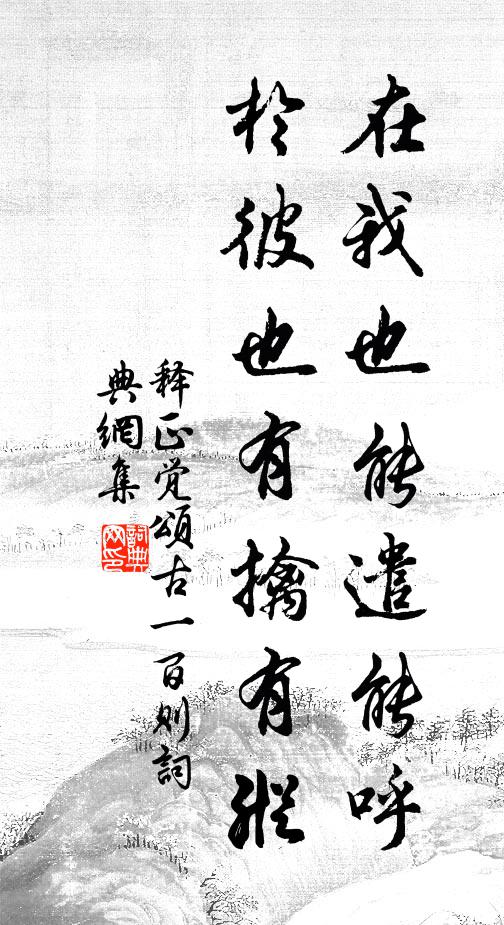 在我也能遣能呼
於彼也有擒有縱
释正觉頌古一百则詞
典網集
詞典
网印